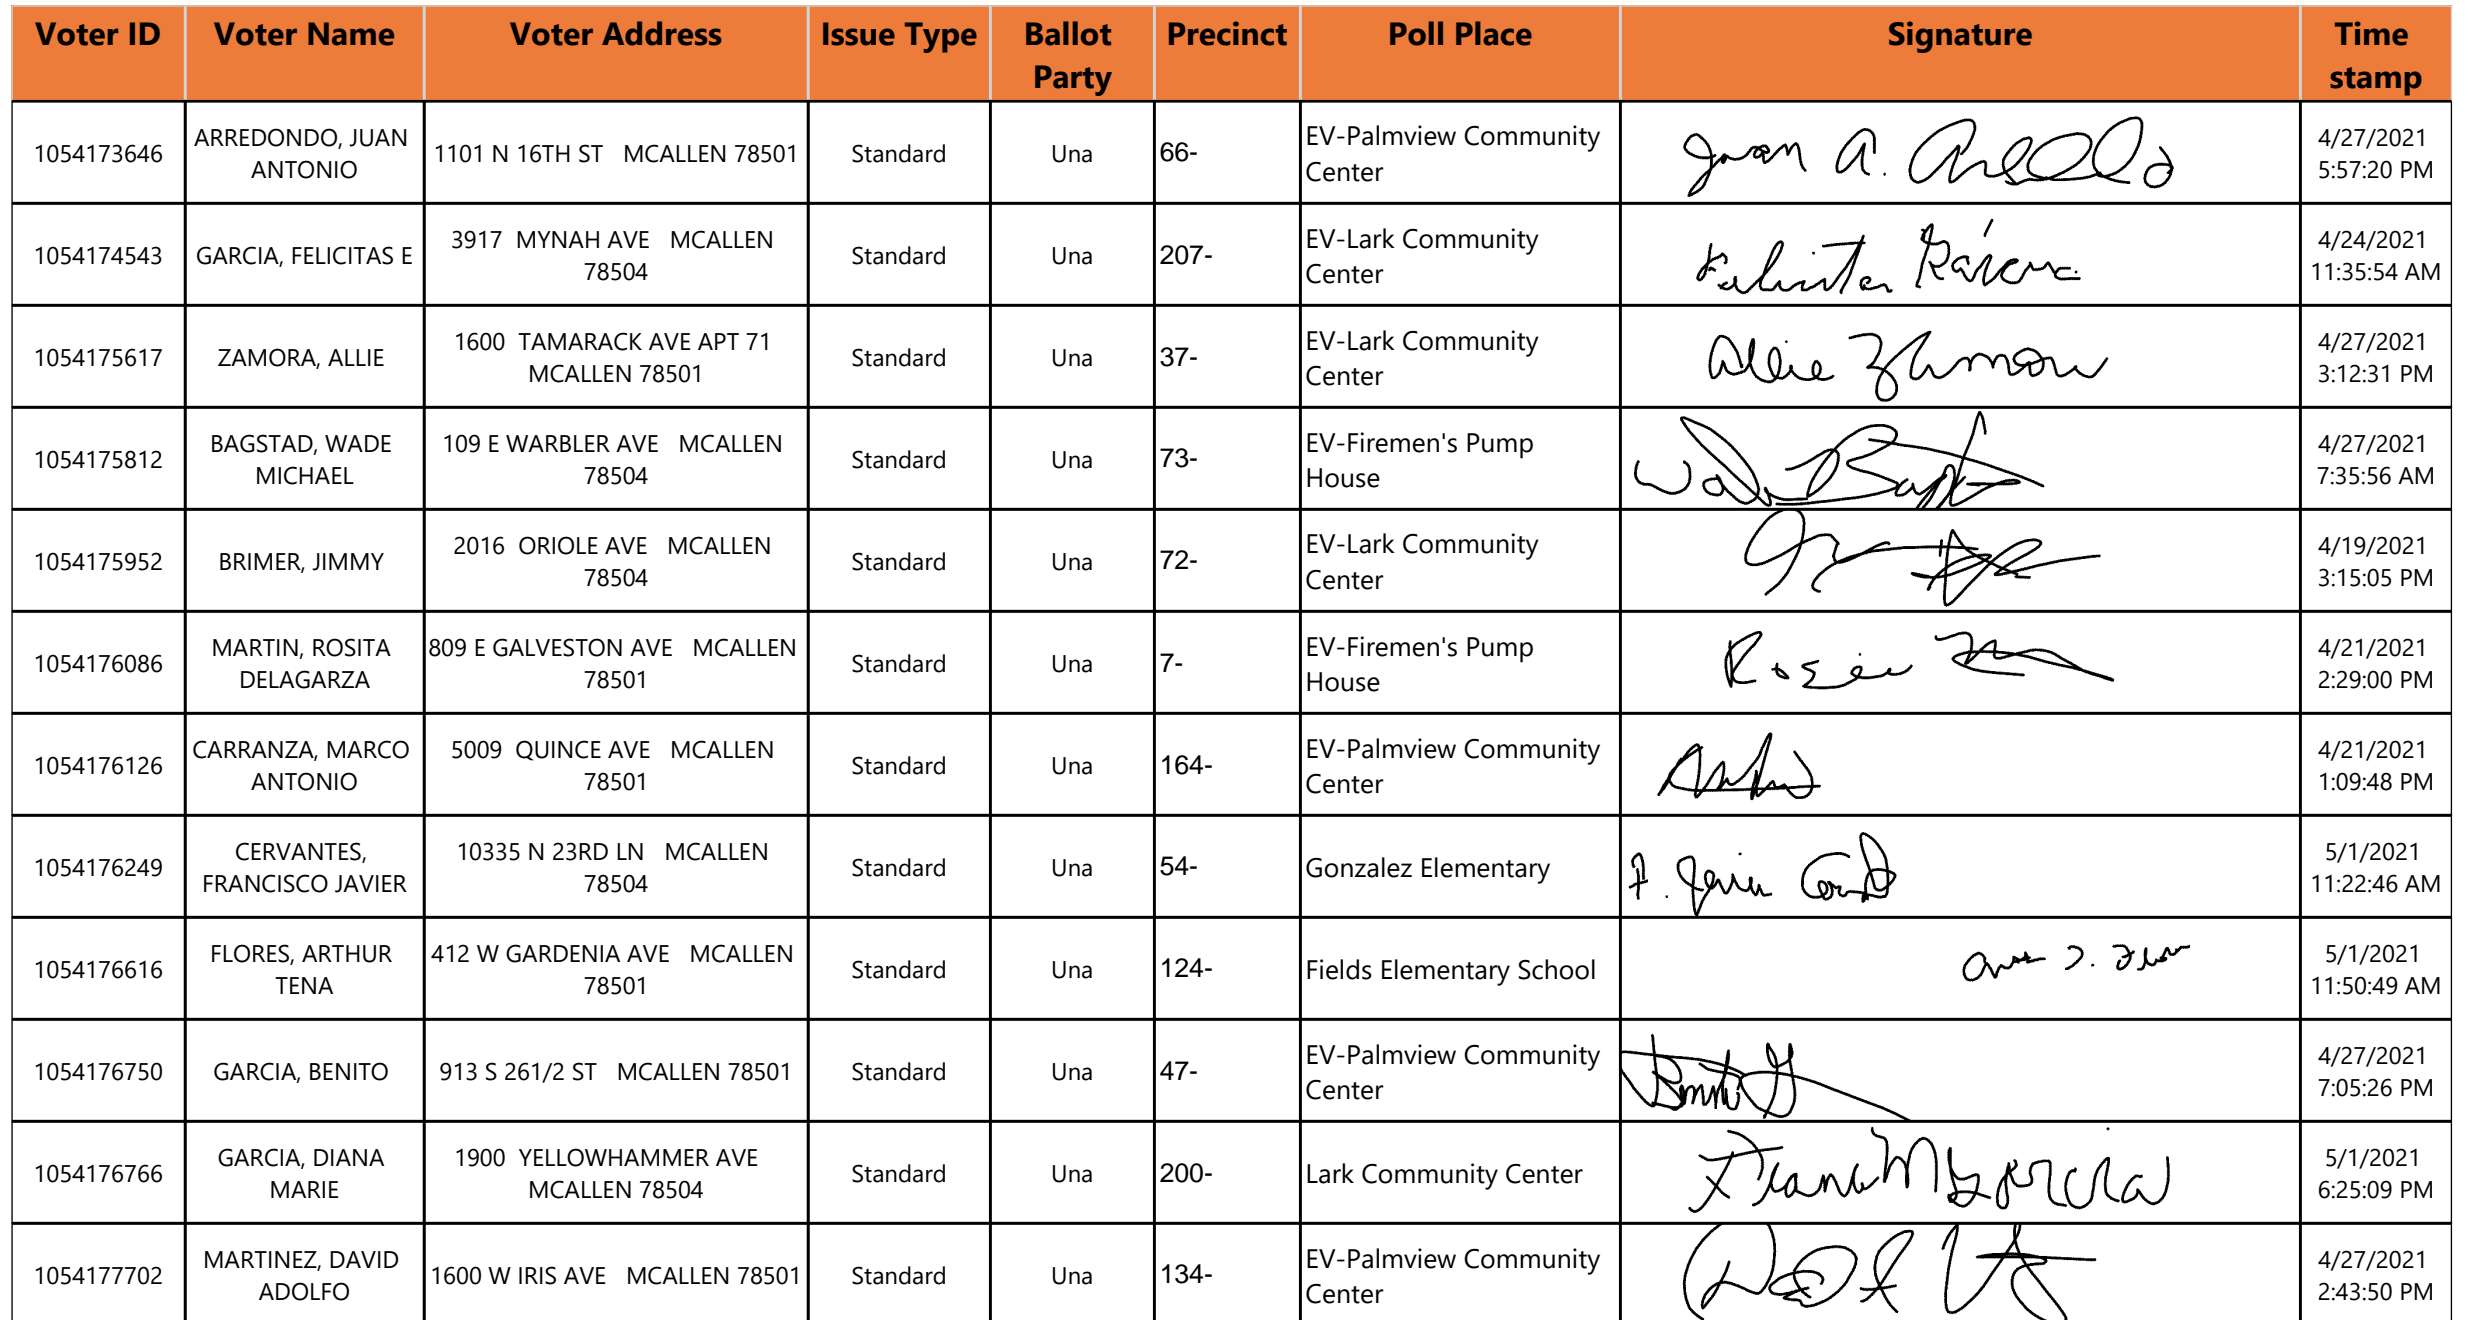 Voter ID Voter Name Voter Address Issue Type Ballot Party Precinct Poll Place Signature Time stamp
1054173646 ARREDONDO, JUAN ANTONIO 1101 N 16TH ST MCALLEN 78501 Standard Una 66- EV-Palmview Community Center Juan A. 4/27/2021 5:57:20 PM
1054174543 GARCIA, FELICITAS E 3917 MYNAH AVE MCALLEN 78504 Standard Una 207- EV-Lark Community Center 4/24/2021 11:35:54 AM
1054175617 ZAMORA, ALLIE 1600 TAMARACK AVE APT 71 MCALLEN 78501 Standard Una 37- EV-Lark Community Center Allie 4/27/2021 3:12:31 PM
1054175812 BAGSTAD, WADE MICHAEL 109 E WARBLER AVE MCALLEN 78504 Standard Una 73- EV-Firemen's Pump House 4/27/2021 7:35:56 AM
1054175952 BRIMER, JIMMY 2016 ORIOLE AVE MCALLEN 78504 Standard Una 72- EV-Lark Community Center 4/19/2021 3:15:05 PM
1054176086 MARTIN, ROSITA DELAGARZA 809 E GALVESTON AVE MCALLEN 78501 Standard Una 7- EV-Firemen's Pump House 4/21/2021 2:29:00 PM
1054176126 CARRANZA, MARCO ANTONIO 5009 QUINCE AVE MCALLEN 78501 Standard Una 164- EV-Palmview Community Center 4/21/2021 1:09:48 PM
1054176249 CERVANTES, FRANCISCO JAVIER 10335 N 23RD LN MCALLEN 78504 Standard Una 54- Gonzalez Elementary 5/1/2021 11:22:46 AM
1054176616 FLORES, ARTHUR TENA 412 W GARDENIA AVE MCALLEN 78501 Standard Una 124- Fields Elementary School 5/1/2021 11:50:49 AM
1054176750 GARCIA, BENITO 913 S 261/2 ST MCALLEN 78501 Standard Una 47- EV-Palmview Community Center 4/27/2021 7:05:26 PM
1054176766 GARCIA, DIANA MARIE 1900 YELLOWHAMMER AVE MCALLEN 78504 Standard Una 200- Lark Community Center Diana M Garcia 5/1/2021 6:25:09 PM
1054177702 MARTINEZ, DAVID ADOLFO 1600 W IRIS AVE MCALLEN 78501 Standard Una 134- EV-Palmview Community Center 4/27/2021 2:43:50 PM